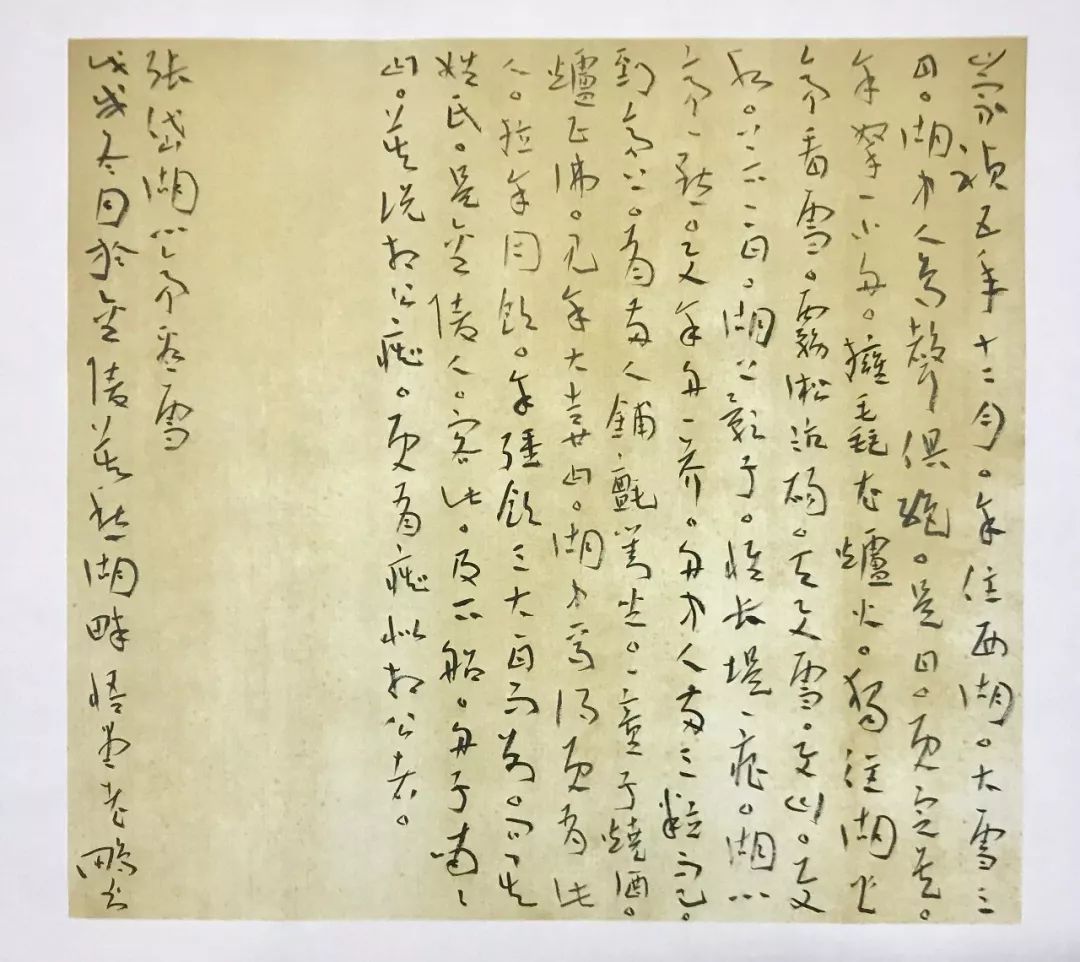 崇禎五年十二月。余住西湖。大雪三
日。湖中人鳥聲俱絕。是日。更定矣。
余拏一小舟。擁毳衣爐火。獨往湖心
亭看雪。霧凇沆碭。天與雲。與山。與
水。上下一白。湖上影子。惟長堤一痕。湖心
亭一點。與余舟一芥。舟中人兩三粒而已。
到亭上。有兩人鋪氈對坐。一童子燒酒。
爐正沸。見余大喜曰。湖中焉得更有此
人。拉余同飲。余强飲三大白而別。問其
姓氏。是金陵人。客此。及下船。舟子喃〻
曰。莫說相公癡。更有癡似相公者。
張岱湖心亭看雪
戊戌冬月於金陵莫愁湖畔悟堂老